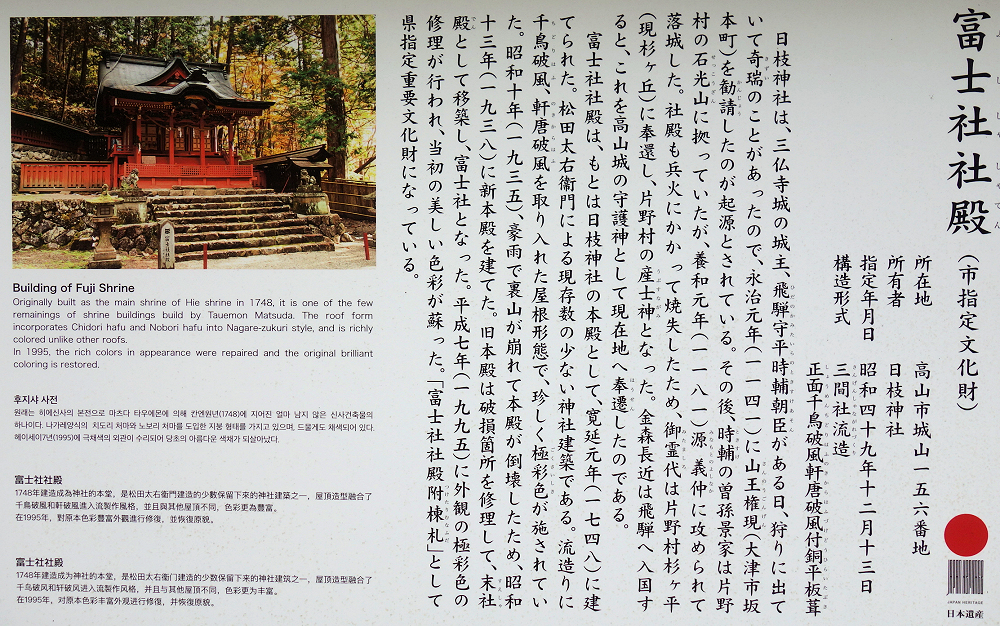 富士社社殿（市指定文化財）
所在地　高山市城山一五六番地
所有者　日枝神社
指定年月日　昭和四十九年十二月十三日
構造形式　三間社流造
正面千鳥破風軒唐破風付銅平板葺
日枝神社は、三仏寺城の城主、飛騨守平時輔朝臣がある日、狩りに出て
いて奇瑞のことがあったので、永治元年（一一四一）に山王権現（大津市坂
本町）を勧請したのが起源とされている。その後、時輔の曽孫景家は片野
村の石光山に拠っていたが、養和元年（一一八一）源義仲に攻められて
落城した。社殿も兵火にかかって焼失したため、御霊代は片野村杉ヶ平
（現杉ヶ丘）に奉還し、片野村の産士神となった。金森長近は飛騨へ入国す
ると、これを高山城の守護神として現在地へ奉遷したのである。
富士社社殿は、もとは日枝神社の本殿として、寛延元年（一七四八）に建
てられた。松田太右衛門による現存数の少ない神社建築である。流造りに
千鳥破風、軒唐破風を取り入れた屋根形態で、珍しく極彩色が施されてい
た。昭和十年（一九三五）、豪雨で裏山が崩れて本殿が倒壊したため、昭和
十三年（一九三八）に新本殿を建てた。旧本殿は破損箇所を修理して、末社
殿として移築し、富士社となった。平成七年（一九九五）に外観の極彩色の
修理が行われ、当初の美しい色彩が蘇った。「富士社社殿附棟札」として
県指定重要文化財になっている。
Building of Fuji Shrine
Originally built as the main shrine of Hie shrine in 1748, it is one of the few
remainings of shrine buildings build by Tauemon Matsuda. The roof form
incorporates Chidori hafu and Nobori hafu into Nagare-zukuri style, and is richly
colored unlike other roofs.
In 1995, the rich colors in appearance were repaired and the original brilliant
coloring is restored.
후지샤 사전
원래는 히에신사의 본전으로 마츠다 타우에몬에 의해 칸엔원년(1748)에 지어진 얼마 남지 않은 신사건축물의
하나이다. 나가레양식의 치도리 처마와 노보리 처마를 도입한 지붕 형태를 가지고 있으며, 드물게도 채색되어 있다.
헤이세이7년(1995)에 극채색의 외관이 수리되어 당초의 아름다운 색채가 되살아났다.
富士社社殿
1748年建造成為神社的本堂，是松田太右衛門建造的少數保留下來的神社建築之一，屋頂造型融合了
千鳥破風和軒破風進入流製作風格，並且與其他屋頂不同，色彩更為豐富。
在1995年，對原本色彩豐富外觀進行修復，並恢復原貌。
富士社社殿
1748年建造成为神社的本堂，是松田太右卫门建造的少数保留下来的神社建筑之一，屋顶造型融合了
千鸟破风和轩破风进入流製作风格，并且与其他屋顶不同，色彩更为丰富。
在1995年，对原本色彩丰富外观进行修复，并恢复原貌。
JAPAN HERITAGE
日本遺産